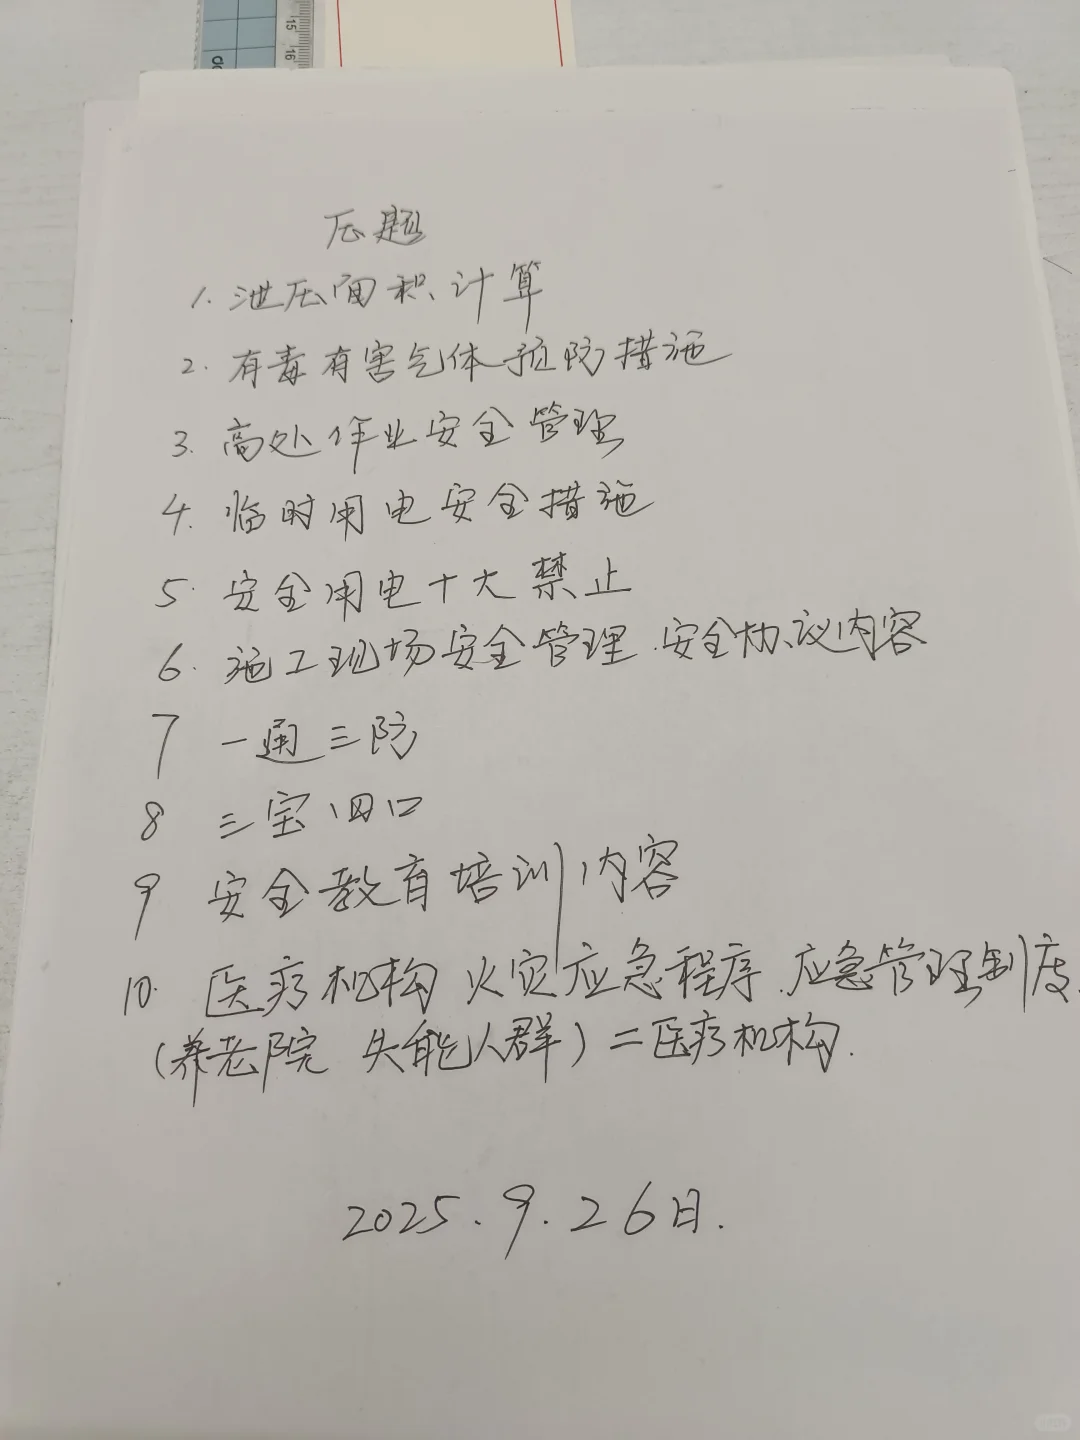 15
16
压题
1. 泄压面积计算
2. 有毒有害气体预防措施
3. 高处作业安全管理
4. 临时用电安全措施
5. 安全用电十大禁止
6. 施工现场安全管理.安全协议内容
7 一通三防
8 三宝四口
9 安全教育培训内容
10. 医疗机构 火灾应急程序.应急管理制度.
(养老院 失能人群)二医疗机构.
2025.9.26日.